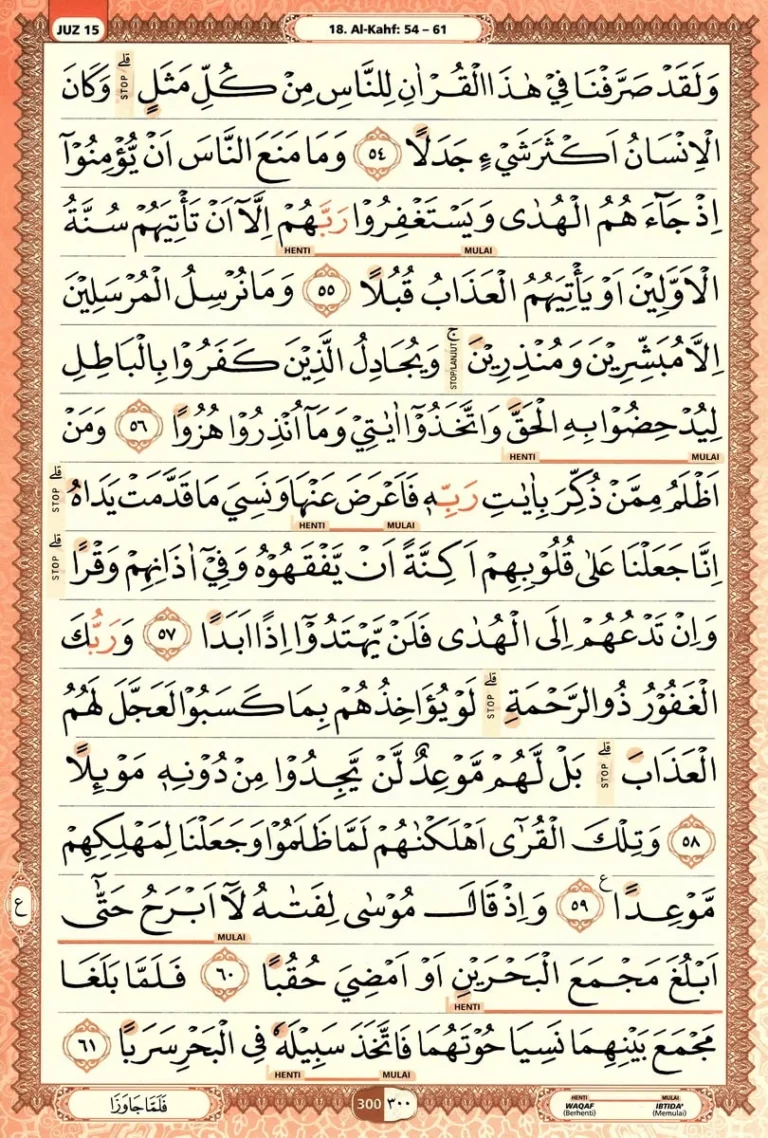 JUZ 15
18. Al-Kahf: 54 – 61
وَلَقَدْ صَرَّفْنَا فِيْ هٰذَا الْقُرْاٰنِ لِلنَّاسِ مِنْ كُلِّ مَثَلٍ ۗ STOP وَكَانَ
الْاِنْسَانُ اَكْثَرَ شَيْءٍ جَدَلًا ٥٤ وَمَا مَنَعَ النَّاسَ اَنْ يُّؤْمِنُوْٓا
اِذْ جَاۤءَهُمُ الْهُدٰى وَيَسْتَغْفِرُوْا رَبَّهُمْ اِلَّآ اَنْ تَأْتِيَهُمْ سُنَّةُ
MULAI HENTI
الْاَوَّلِيْنَ اَوْ يَأْتِيَهُمُ الْعَذَابُ قُبُلًا ٥٥ وَمَا نُرْسِلُ الْمُرْسَلِيْنَ
اِلَّا مُبَشِّرِيْنَ وَمُنْذِرِيْنَ ۚ STOP/LANJUT وَيُجَادِلُ الَّذِيْنَ كَفَرُوْا بِالْبَاطِلِ
لِيُدْحِضُوْا بِهِ الْحَقَّ وَاتَّخَذُوْٓا اٰيٰتِيْ وَمَآ اُنْذِرُوْا هُزُوًا ٥٦ وَمَنْ
MULAI HENTI
اَظْلَمُ مِمَّنْ ذُكِّرَ بِاٰيٰتِ رَبِّهٖ فَاَعْرَضَ عَنْهَا وَنَسِيَ مَا قَدَّمَتْ يَدَاهُ ۗ STOP
MULAI HENTI
اِنَّا جَعَلْنَا عَلٰى قُلُوْبِهِمْ اَكِنَّةً اَنْ يَّفْقَهُوْهُ وَفِيْٓ اٰذَانِهِمْ وَقْرًا ۗ STOP
وَاِنْ تَدْعُهُمْ اِلَى الْهُدٰى فَلَنْ يَّهْتَدُوْٓا اِذًا اَبَدًا ٥٧ وَرَبُّكَ
الْغَفُوْرُ ذُو الرَّحْمَةِ ۗ STOP لَوْ يُؤَاخِذُهُمْ بِمَا كَسَبُوْا لَعَجَّلَ لَهُمُ
الْعَذَابَ ۗ STOP بَلْ لَّهُمْ مَّوْعِدٌ لَّنْ يَّجِدُوْا مِنْ دُوْنِهٖ مَوْىِٕلًا
٥٨ وَتِلْكَ الْقُرٰٓى اَهْلَكْنٰهُمْ لَمَّا ظَلَمُوْا وَجَعَلْنَا لِمَهْلِكِهِمْ
مَّوْعِدًا ࣖ ٥٩ وَاِذْ قَالَ مُوْسٰى لِفَتٰىهُ لَآ اَبْرَحُ حَتّٰٓى
ع
MULAI
اَبْلُغَ مَجْمَعَ الْبَحْرَيْنِ اَوْ اَمْضِيَ حُقُبًا ٦٠ فَلَمَّا بَلَغَا
HENTI
مَجْمَعَ بَيْنِهِمَا نَسِيَا حُوْتَهُمَا فَاتَّخَذَ سَبِيْلَهٗ فِى الْبَحْرِ سَرَبًا ٦١
MULAI HENTI
فَلَمَّا جَاوَزَا
300 ٣٠٠
HENTI MULAI
WAQAF IBTIDA'
(Berhenti) (Memulai)